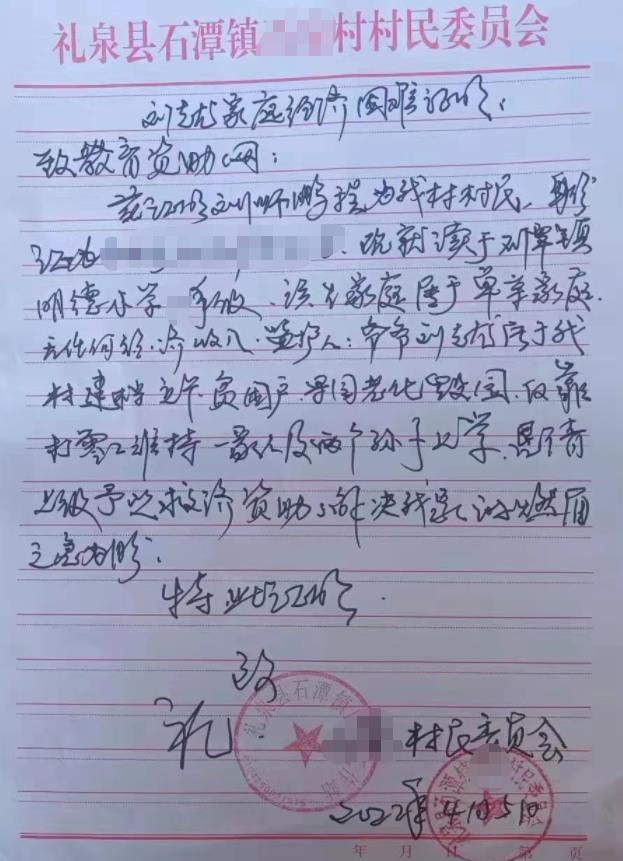 礼泉县石潭镇 村村民委员会
刘志龙家庭经济困难证明
致教育资助网:
兹证明刘师鹏程为我村村民、身份
证为 、现就读于 镇
明德小学 年级、该生家庭属于单亲家庭、
无任何经济收入、监护人:爷爷刘志龙属于我
村建档立卡贫困户、 、仅靠
打零工维持一家人及两个孙子上学、恳请
上级予以救济资助解决我家的燃眉
之急为盼、
特此证明、
致
礼
村民委员会
2022年4月5日
礼泉县石潭镇
年 月 日 第 页